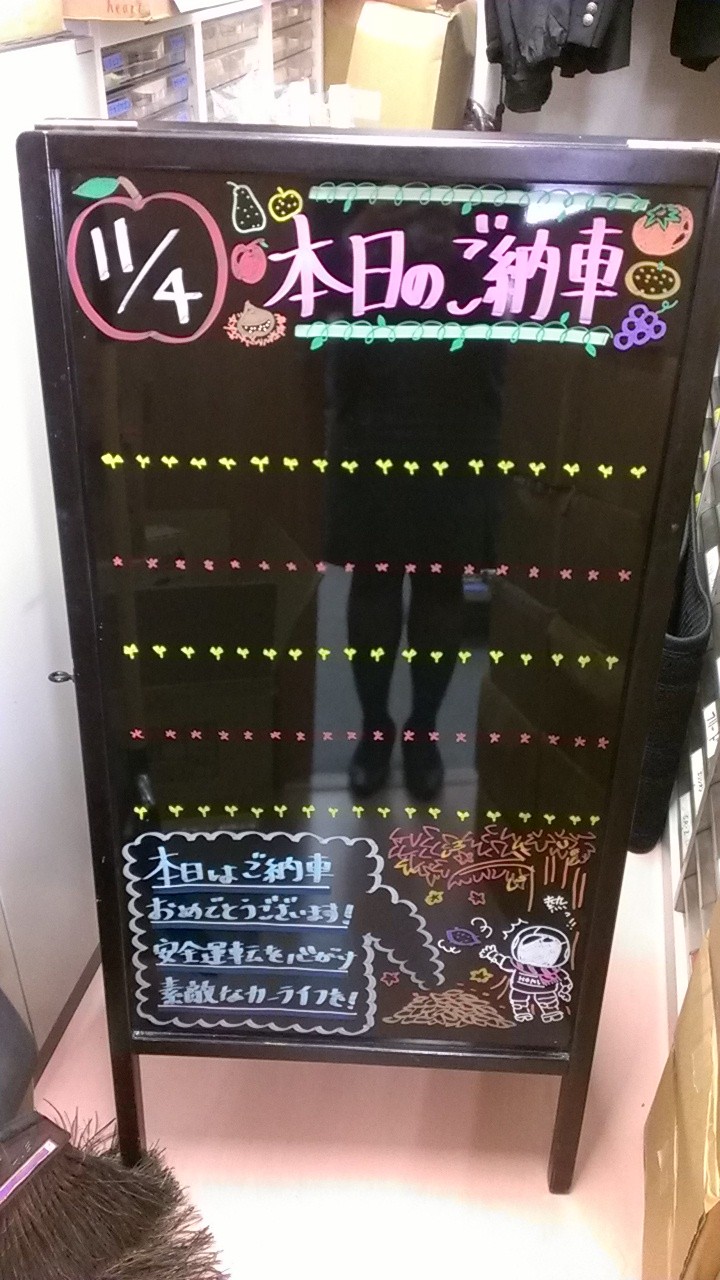 heart
11/4
本日のご納車
本日はご納車
おめでとうございます!
安全運転を心がけ
素敵なカーライフを!
熱っ!!